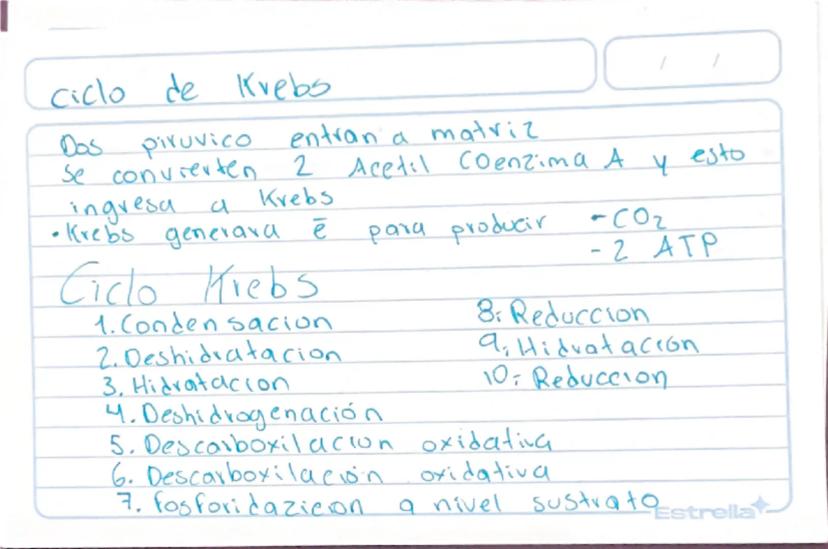 Ciclo de Krebs
Dos piruvico entran a matriz
se convierten 2 Acetil Coenzima A y esto
ingresa a Krebs
• Krebs generara ē para producir - CO2
- 2 ATP
Ciclo Krebs
1. Condensacion
2. Deshidratacion
3. Hidratacion
4. Deshidrogenación
5. Descarboxilacion oxidativa
6. Descarboxilación oxidativa
7. fosforidazicion a nivel sustrato
8: Reduccion
9: Hidratacion
10: Reduccion
Estrella